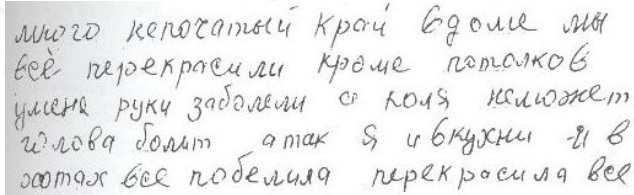 много непочатый край вдоме мы
всё перекрасили кроме потолков
уменя руки заболели а коля неможет
голова болит а так я и вкухни и в
все побелила перекрасила все